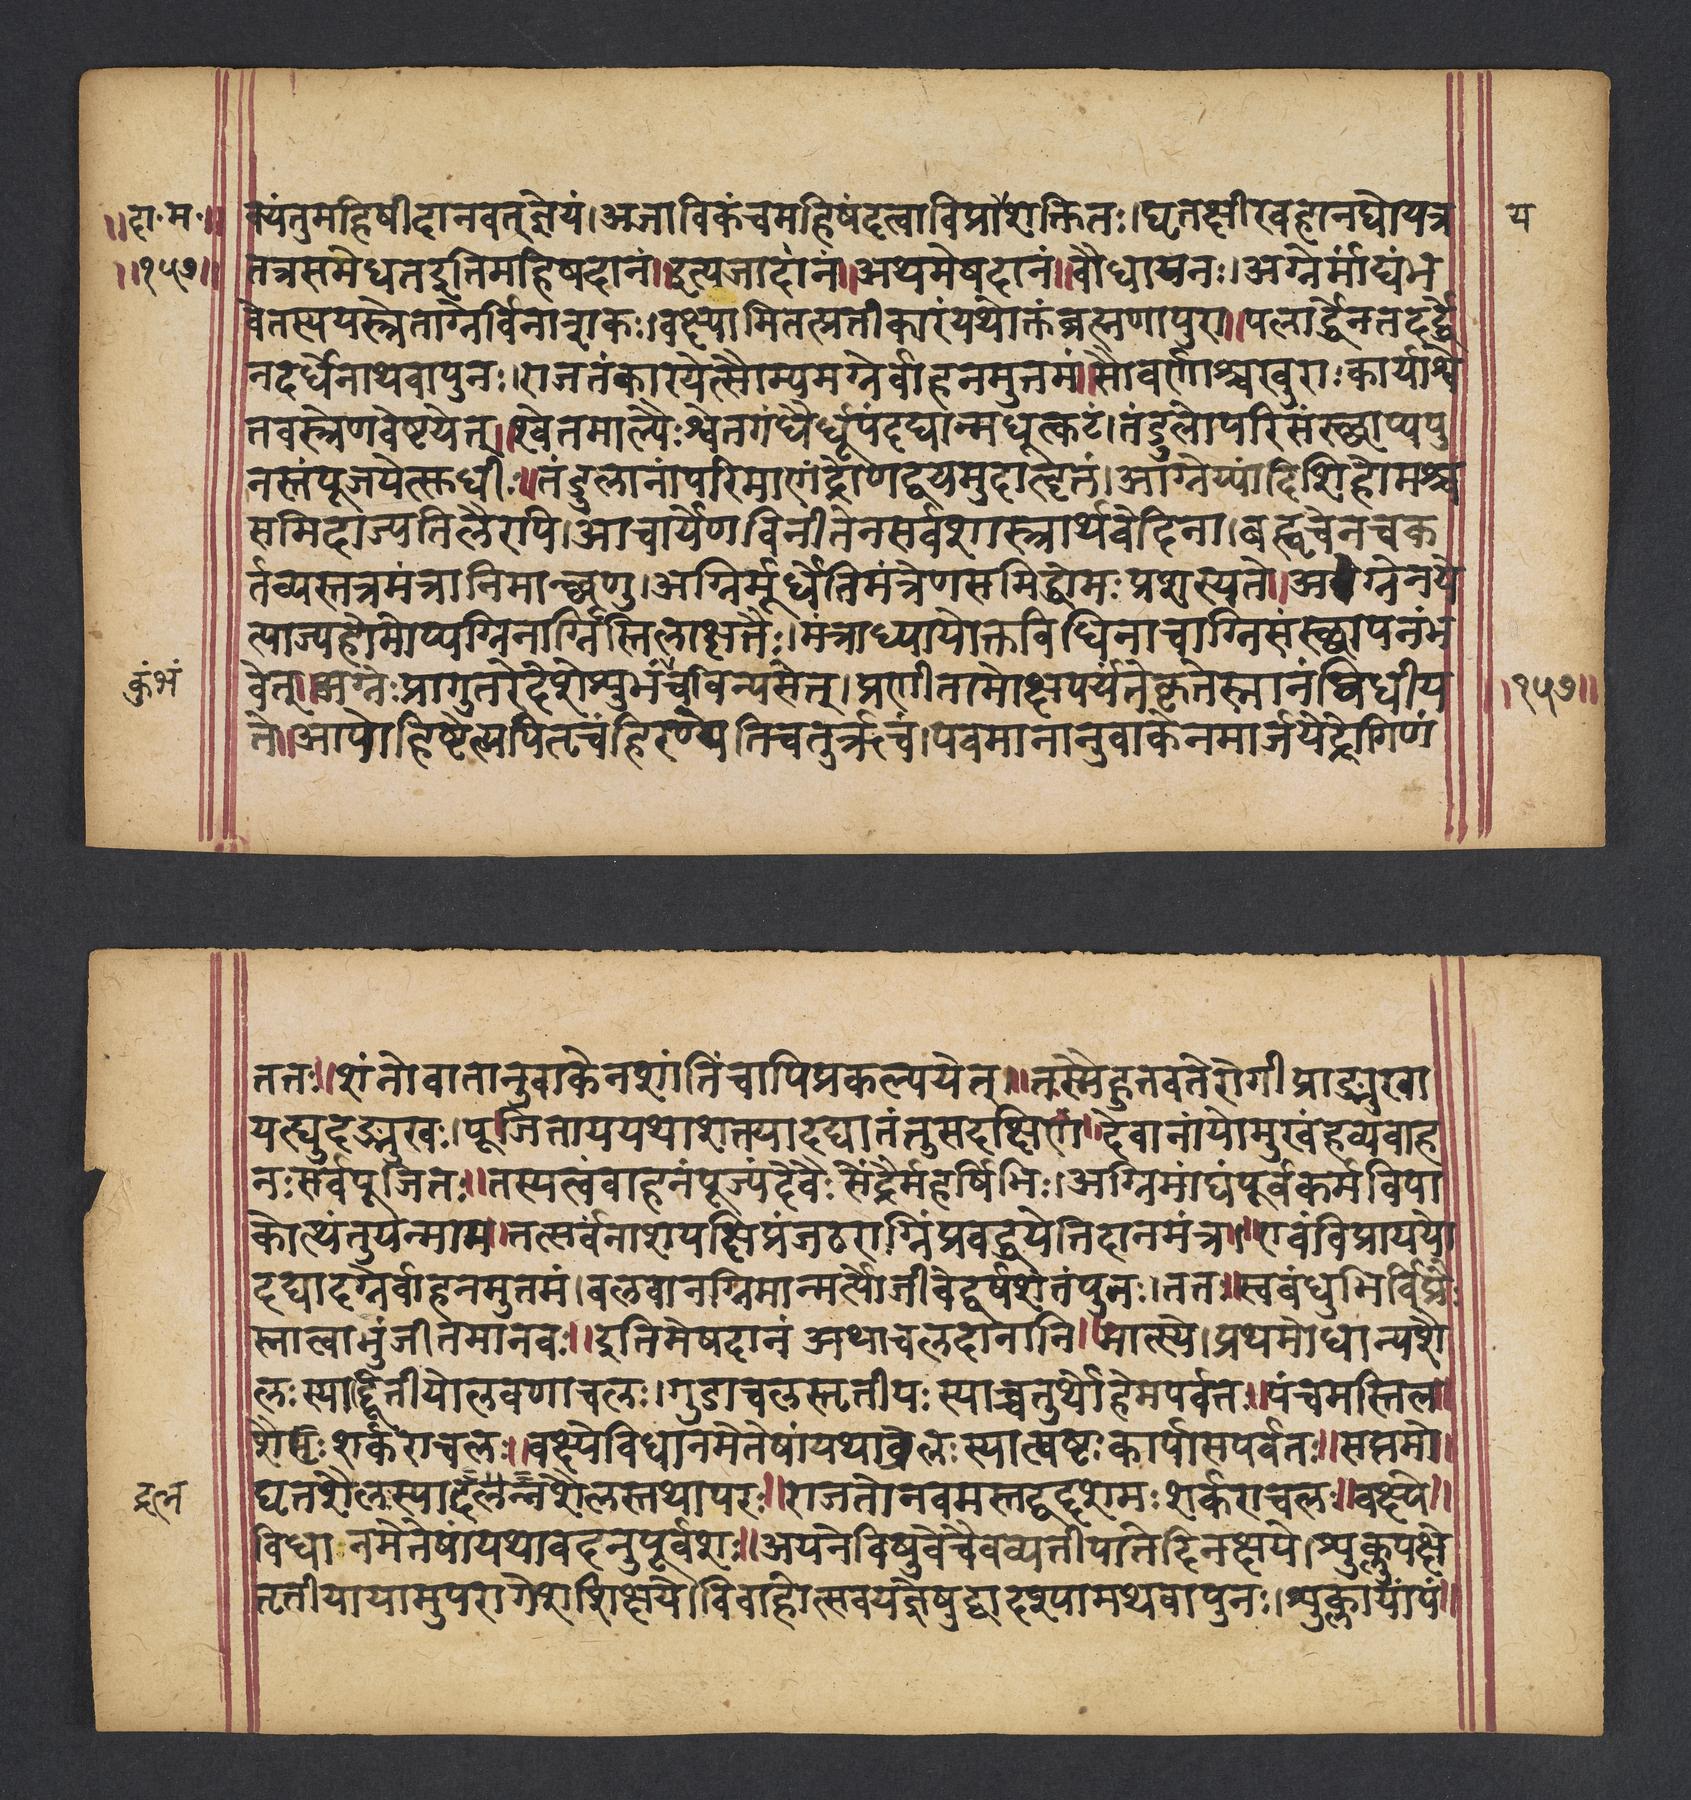 ॥दा॰म॰॥
॥१५७॥
क्यंतुमहिषीदानवत्ज्ञेयं।अजाविकंचमहिषंदत्वाविप्रायशक्तितः।घृतक्षीरवहानद्योयत्र
य
तत्रसमेधतइतिमहिषदानं॥इत्यजादानं॥अथमेषदानं॥बौधायनः।अग्नेर्मांद्यंभ
वेतस्ययस्त्रेताग्नेर्विनाशकः।वक्ष्यामितत्प्रतीकारंयथोक्तंब्रह्मणापुरा॥पलार्द्धेनतदर्द्धे
नदर्धेनाथवापुनः।राजतंकारयेत्सौम्यमग्नेर्वाहनमुत्तमं॥सौवर्णाश्चखुराःकार्याश्वे
तवस्त्रेणवेष्टयेत्॥श्वेतमाल्यैःश्वेतगंधैर्धूपंदद्यान्मधूत्कटं।तंडुलोपरिसंस्थाप्यपु
नस्तंपूजयेत्क्तधीः॥तंडुलानांपरिमाणंद्रोणद्वयमुदाहृतं।आग्नेय्यांदिशिहोमश्च
समिदाज्यतिलैरपि।आचार्येणविनीतेनसर्वशास्त्रार्थवेदिना।बह्वृचेनचक
र्तव्यस्तत्रमंत्रानिमान्छृणु।अग्निर्मूर्धेतिमंत्रेणसमिद्धोमःप्रशस्यते॥अग्नेनये
त्याज्यहोमोप्यग्निनाग्निंस्तिलाक्षतैः।मंत्राध्यायोक्तविधिनाचाग्निसंस्थापनंभ
कुंभं
वेत्॥अग्नेःप्रागुत्तरेदेशेशुभंचविन्यसेत्।प्रणीतामोक्षपर्यंतेकृतेस्नानंविधीय
॥१५७॥
ते॥आपोहिष्टेत्यपितृचंहिरण्येतिचतुर्ऋचं।पवमानानुवाकेनमार्जयेद्रोगिणं
ततः॥शंनोवातानुवाकेनशांतिंचापिप्रकल्पयेत्॥तस्मैहुतवतेरोगीप्राङ्मुखा
यत्द्युदङ्मुखः।पूजितायययथाशक्त्यादद्यात्तंतुसदक्षिणं॥देवानांयोमुखंहव्यवाह
नःसर्वपूजितः॥तस्यत्वंवाहनंपूज्यंदेवैःसेंद्रैर्महर्षिभिः।अग्निमांद्यंपूर्वकर्मविपा
कोत्थंतुयन्मम॥तत्सर्वंनाशयक्षिप्रंजठराग्निंप्रवर्द्धयेतिदानमंत्रः॥एवंविप्राययो
दद्यादग्नेर्वाहनमुत्तमं।बलवानग्निमान्मर्त्योजीवेद्वर्षशतंपुनः।ततः॥स्वबंधुभिर्विप्रैः
स्नात्वाभुंजीतमानवः॥इतिमेषदानं अथाचलदानानि॥मात्स्ये।प्रथमोधान्यशै
लःस्याद्द्वितीयोलवणाचलः।गुडाचलस्तृतीयःस्याच्चतुर्थोहेमपर्वतः॥पंचमस्तिल
शैलःशर्कराचलः॥वक्ष्येविधानमेतेषांयथावलःस्यात्षष्टःकार्पासपर्वतः॥सप्तमो
घृतशैलःस्याद्रत्नशैलस्तथापरः॥राजतोनवमस्तद्वद्दशमःशर्कराचलः॥वक्ष्ये॥
द्रत्न
विधा नमेतेषांयथावदनुपूर्वशः॥अयनेविषुवेचैवव्यतीपातेदिनक्षये।शुक्लपक्षे
तृतीयायामुपरागेशशिक्षये।विवाहोत्सवयज्ञेषुद्वादश्यामथवापुनः।शुक्लायांपं॥